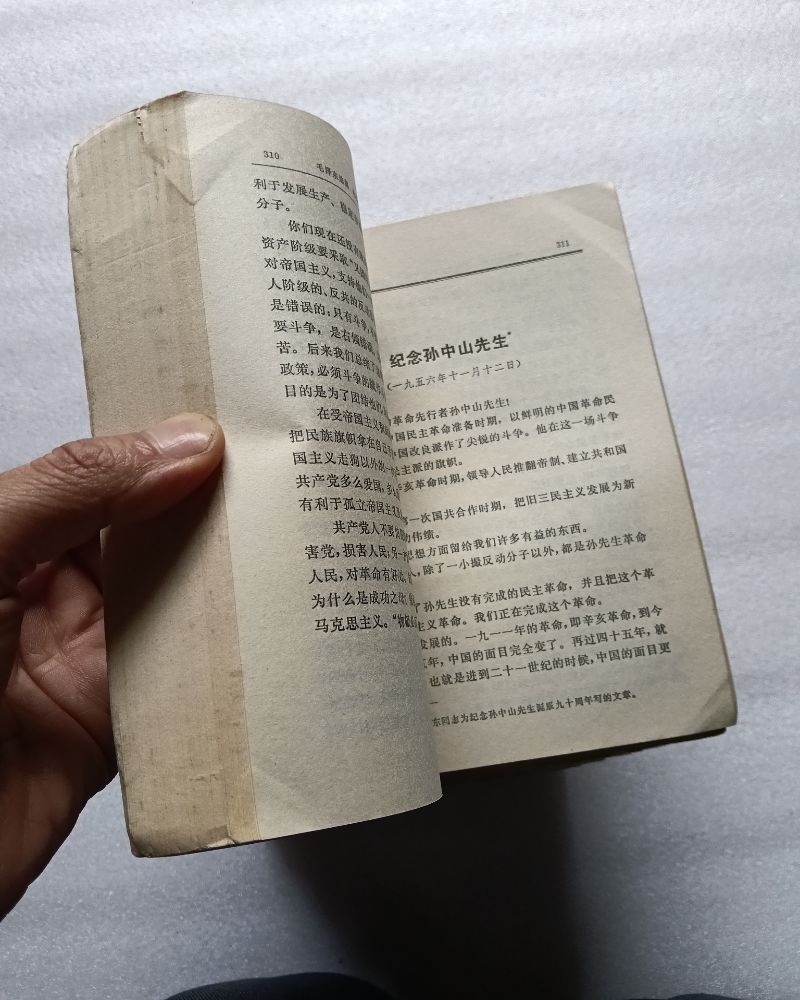 310
毛泽东选集
利于发展生产、
分子。
你们现在还没有
资产阶级要采取“又
对帝国主义，支持
人阶级的、反共的反
是错误的；只有斗争，
要斗争，是右倾错误。
苦。后来我们总结了
政策，必须斗争的
目的是为了团结他
在受帝国主义
把民族旗帜拿在自
国主义走狗以外的一
共产党多么爱国，多
有利于孤立帝国主
共产党人不要
害党，损害人民；另一
人民，对革命有好
为什么是成功之
马克思主义。“物极
311
纪念孙中山先生*
（一九五六年十一月十二日）
革命先行者孙中山先生！
国民主革命准备时期，以鲜明的中国革命民
国改良派作了尖锐的斗争。他在这一场斗争
主派的旗帜。
亥革命时期，领导人民推翻帝制、建立共和国
一次国共合作时期，把旧三民主义发展为新
伟绩。
思想方面留给我们许多有益的东西。
，除了一小撮反动分子以外，都是孙先生革命
了孙先生没有完成的民主革命，并且把这个革
主义革命。我们正在完成这个革命。
发展的。一九一一年的革命，即辛亥革命，到今
年，中国的面目完全变了。再过四十五年，就
也就是进到二十一世纪的时候，中国的面目更
东同志为纪念孙中山先生诞辰九十周年写的文章。